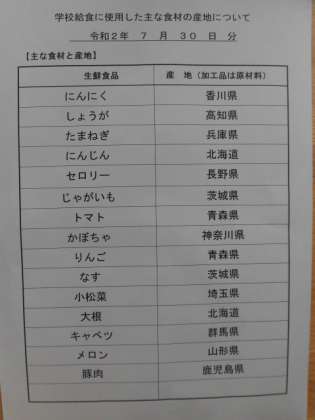 学校給食に使用した主な食材の産地について
令和2年 7 月 30 日 分
【主な食材と産地】
生鮮食品 産 地（加工品は原材料）
にんにく 香川県
しょうが 高知県
たまねぎ 兵庫県
にんじん 北海道
セロリー 長野県
じゃがいも 茨城県
トマト 青森県
かぼちゃ 神奈川県
りんご 青森県
なす 茨城県
小松菜 埼玉県
大根 北海道
キャベツ 群馬県
メロン 山形県
豚肉 鹿児島県